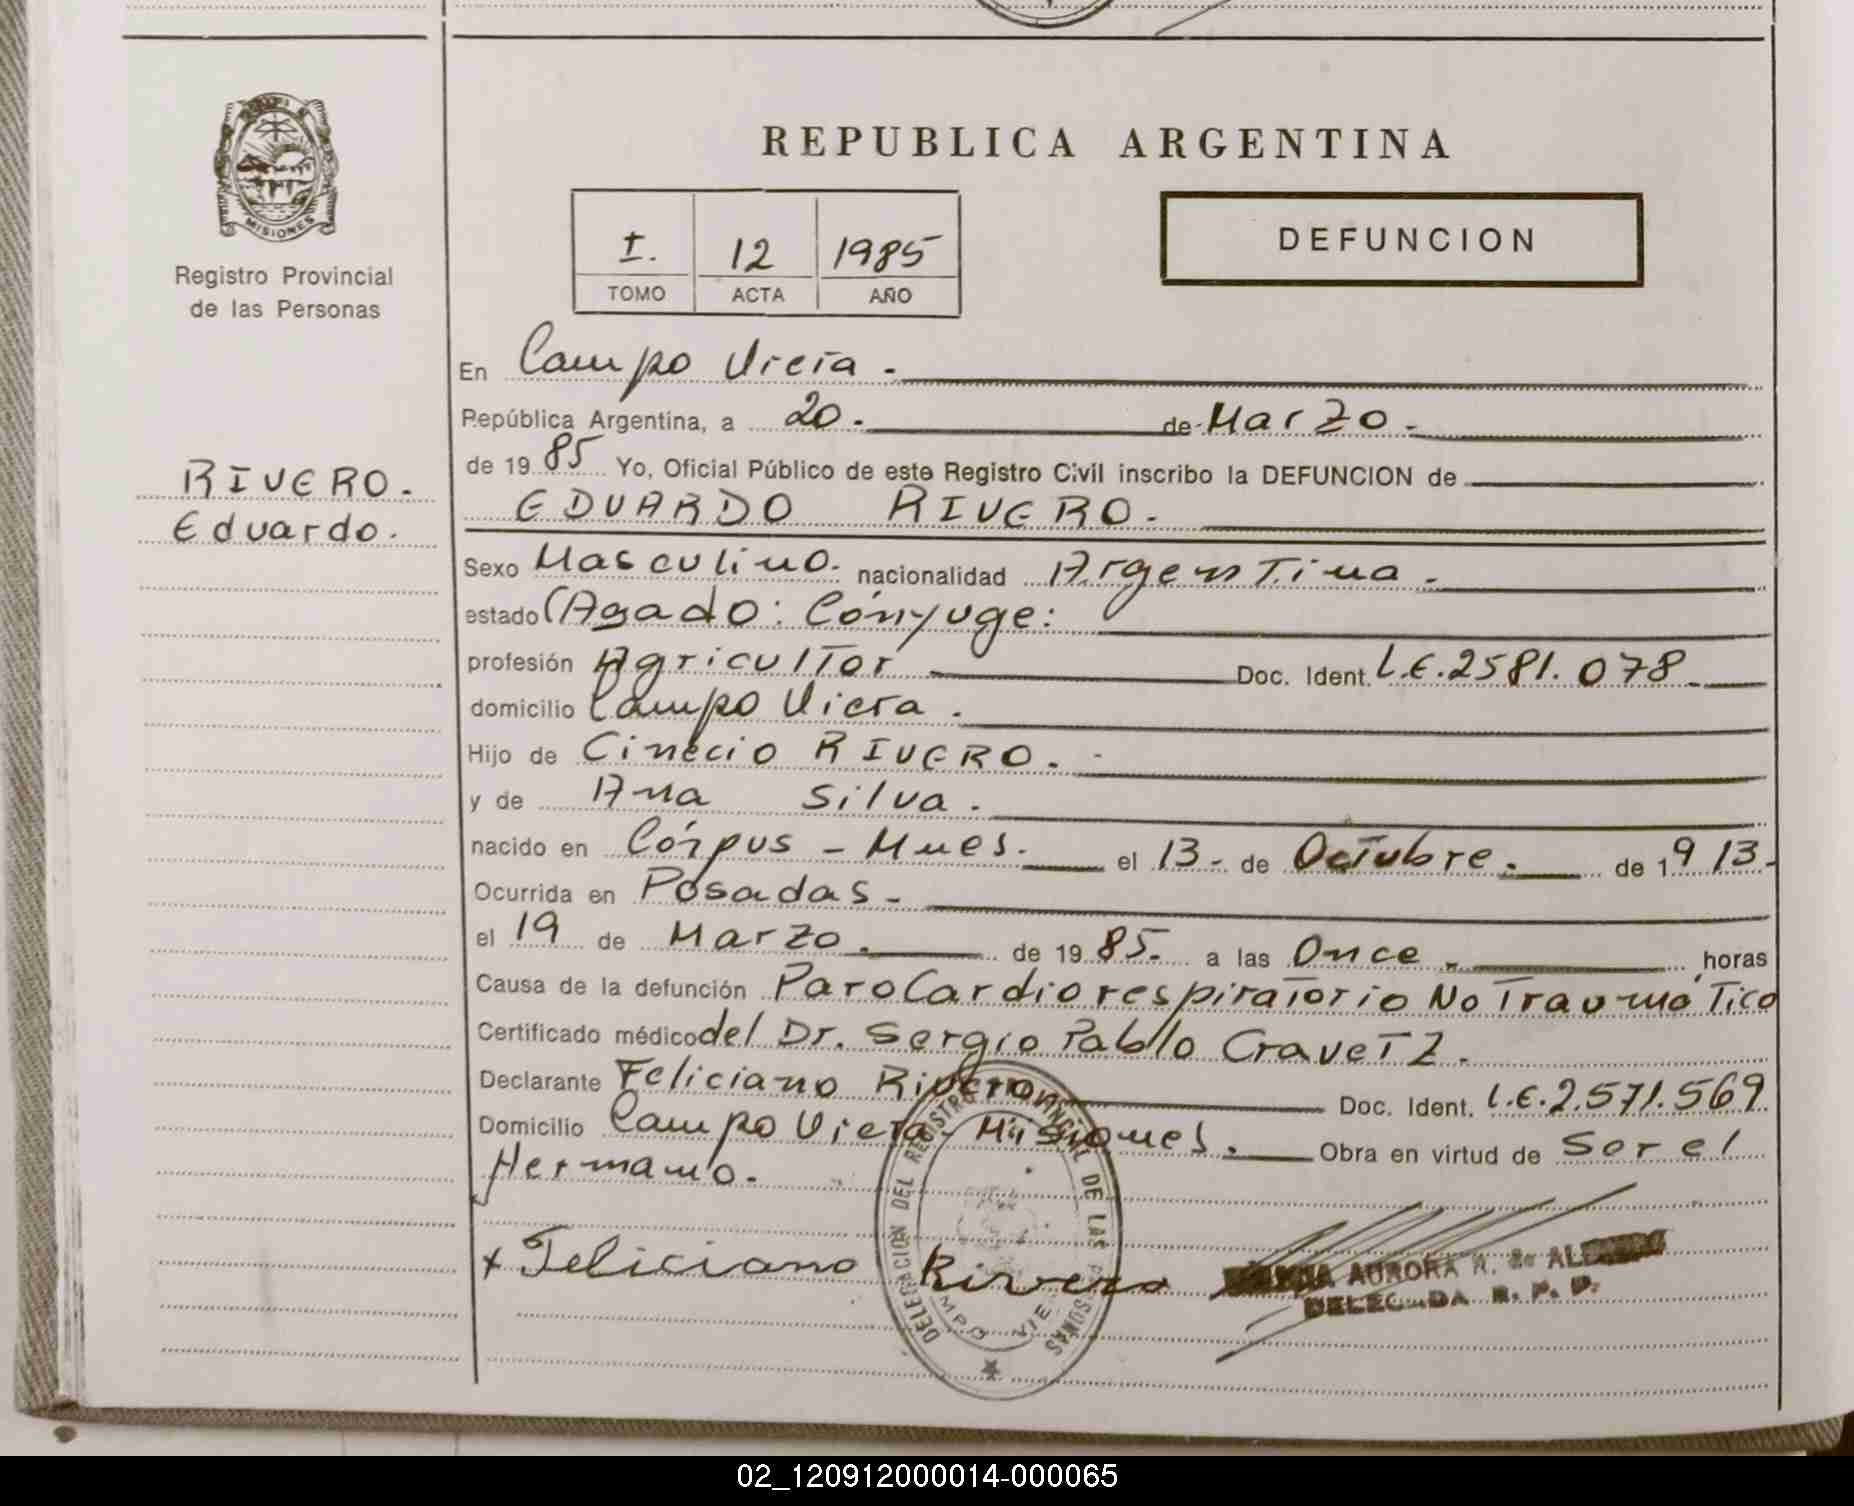 REPUBLICA ARGENTINA
MISIONES
Registro Provincial
de las Personas
I. 12 1985
TOMO ACTA AÑO
DEFUNCION
RIVERO.
Eduardo.
En Campo Viera.
República Argentina, a 20. de Marzo.
de 1985 Yo, Oficial Público de este Registro Civil inscribo la DEFUNCION de
EDUARDO RIVERO.
Sexo Masculino. nacionalidad Argentina.
estado Casado: Cónyuge:
profesión Agricultor Doc. Ident. L.E.2581.078
domicilio Campo Viera.
Hijo de Cinecio RIVERO.
y de Ana Silva.
nacido en Córpus - Mnes. el 13. de Octubre. de 1913.
Ocurrida en Posadas.
el 19 de Marzo. de 1985. a las Once. horas
Causa de la defunción Paro Cardiorespiratorio No Traumático
Certificado médico del Dr. Sergio Pablo Cravetz.
Declarante Feliciano Rivero Doc. Ident. L.E.2.571.569
Domicilio Campo Viera - Misiones. Obra en virtud de Ser el
Hermano.
x Feliciano Rivero
AURORA R. de
DELEGADA R. P. P.
DELEGACION DEL REGISTRO PROVINCIAL DE LAS PERSONAS
CAMPO VIERA
02_120912000014-000065